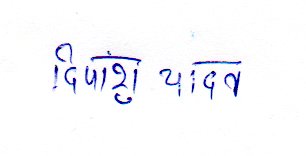 दिपांशु यादव